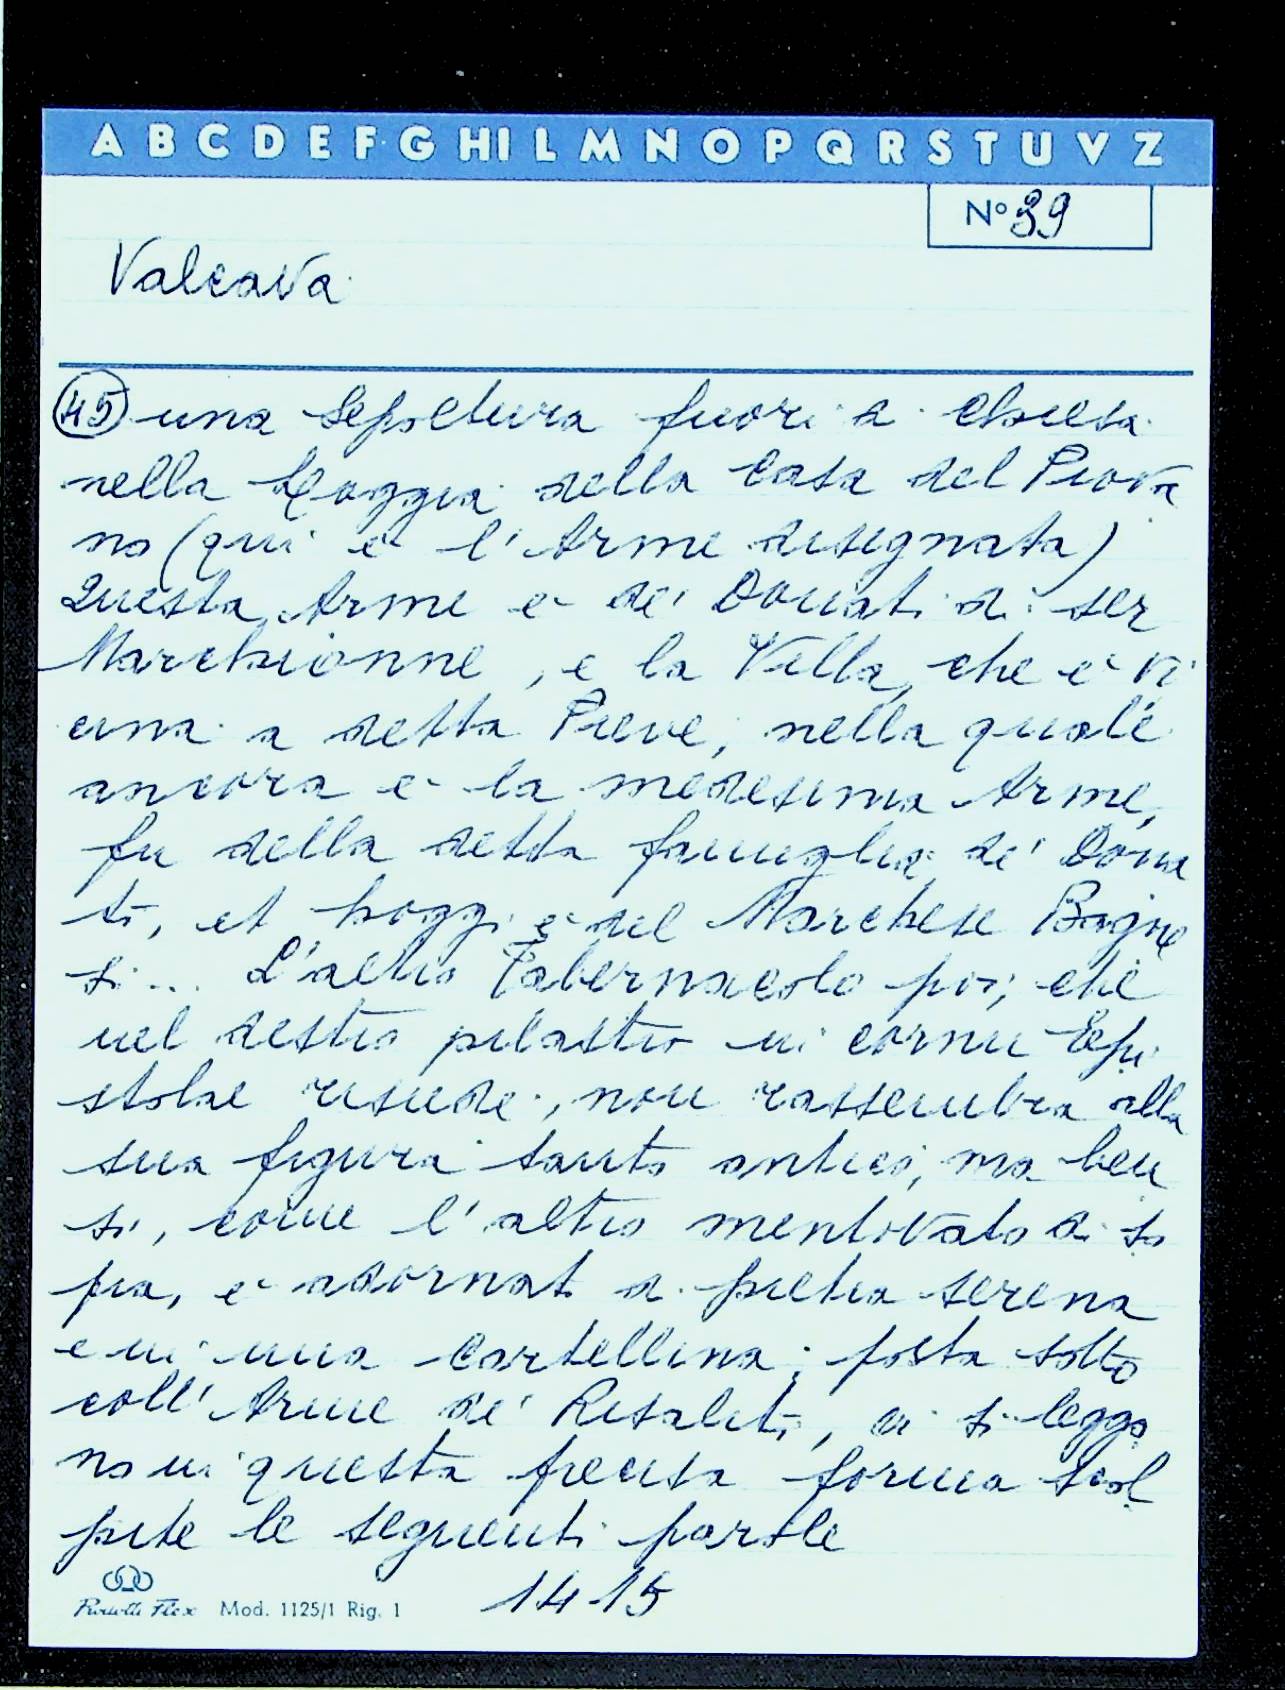 A B C D E F G H I L M N O P Q R S T U V Z
No 39
Valcava
45 una sepoltura fuori di chiesa
nella Loggia della Casa del Piova
no (qui è l'Arme disegnata)
Questa Arme è de' Donati di ser
Marchionne, e la Villa, che è vi
cina a detta Pieve, nella quale
ancora è la medesima Arme,
fu della detta famiglia de' Dona
ti, et hoggi è del Marchese Bagne
si... L'altro Tabernacolo poi, che
nel destro pilastro in cornu Epi
stolae risiede, non rassembra alla
sua figura tanto antico, ma ben
si, come l'altro mentovato di so
pra, è adornato di pietra serena
e in una cartellina, posta sotto
coll'Arme de' Risaliti, vi si leggo
no in questa precisa forma scol
pite le seguenti parole
Mod. 1125/1 Rig. 1
1415